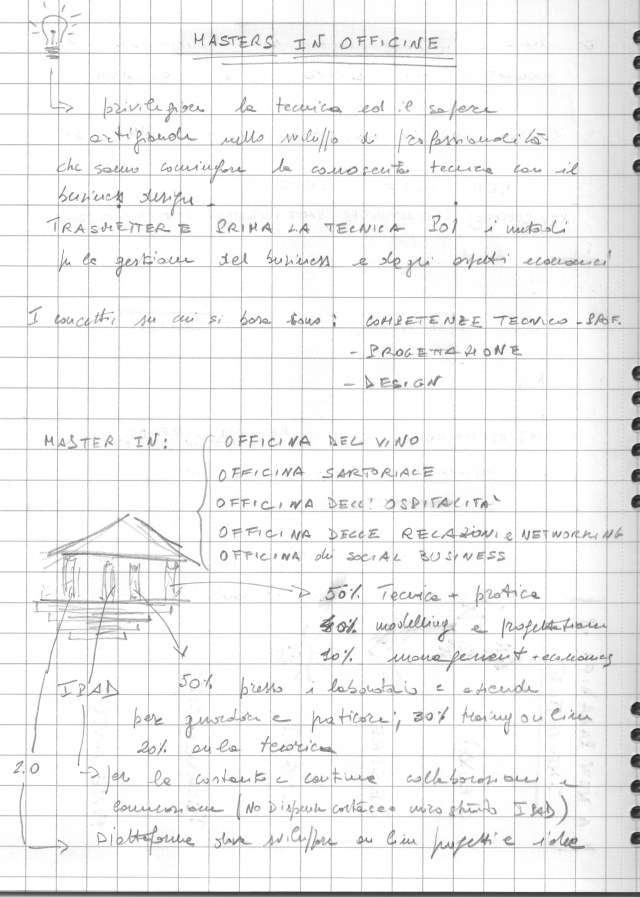 MASTERS IN OFFICINE
privilegiare la tecnica ed il sapere
artigianale nello sviluppo di professionalità
che sanno coniugare la conoscenza tecnica con il
business design.
TRASMETTERE PRIMA LA TECNICA POI i metodi
per la gestione del business e degli aspetti economici
I concetti su cui si basa sono: COMPETENZE TECNICO-PROF.
- PROGETTAZIONE
- DESIGN
MASTER IN:
OFFICINA DEL VINO
OFFICINA SARTORIALE
OFFICINA DELL'OSPITALITÀ
OFFICINA DELLE RELAZIONI e NETWORKING
OFFICINA di SOCIAL BUSINESS
50% Tecnica + pratica
40% modelling e progettazione
10% management + economics
IPAD
50% presso i laboratori e aziende
per guardare e praticare; 30% training on line
20% aula teorica
2.0
per la costante e continua collaborazione e
connessione (No Dispense cartacee IPAD)
Piattaforme dove sviluppare on line progetti e idee